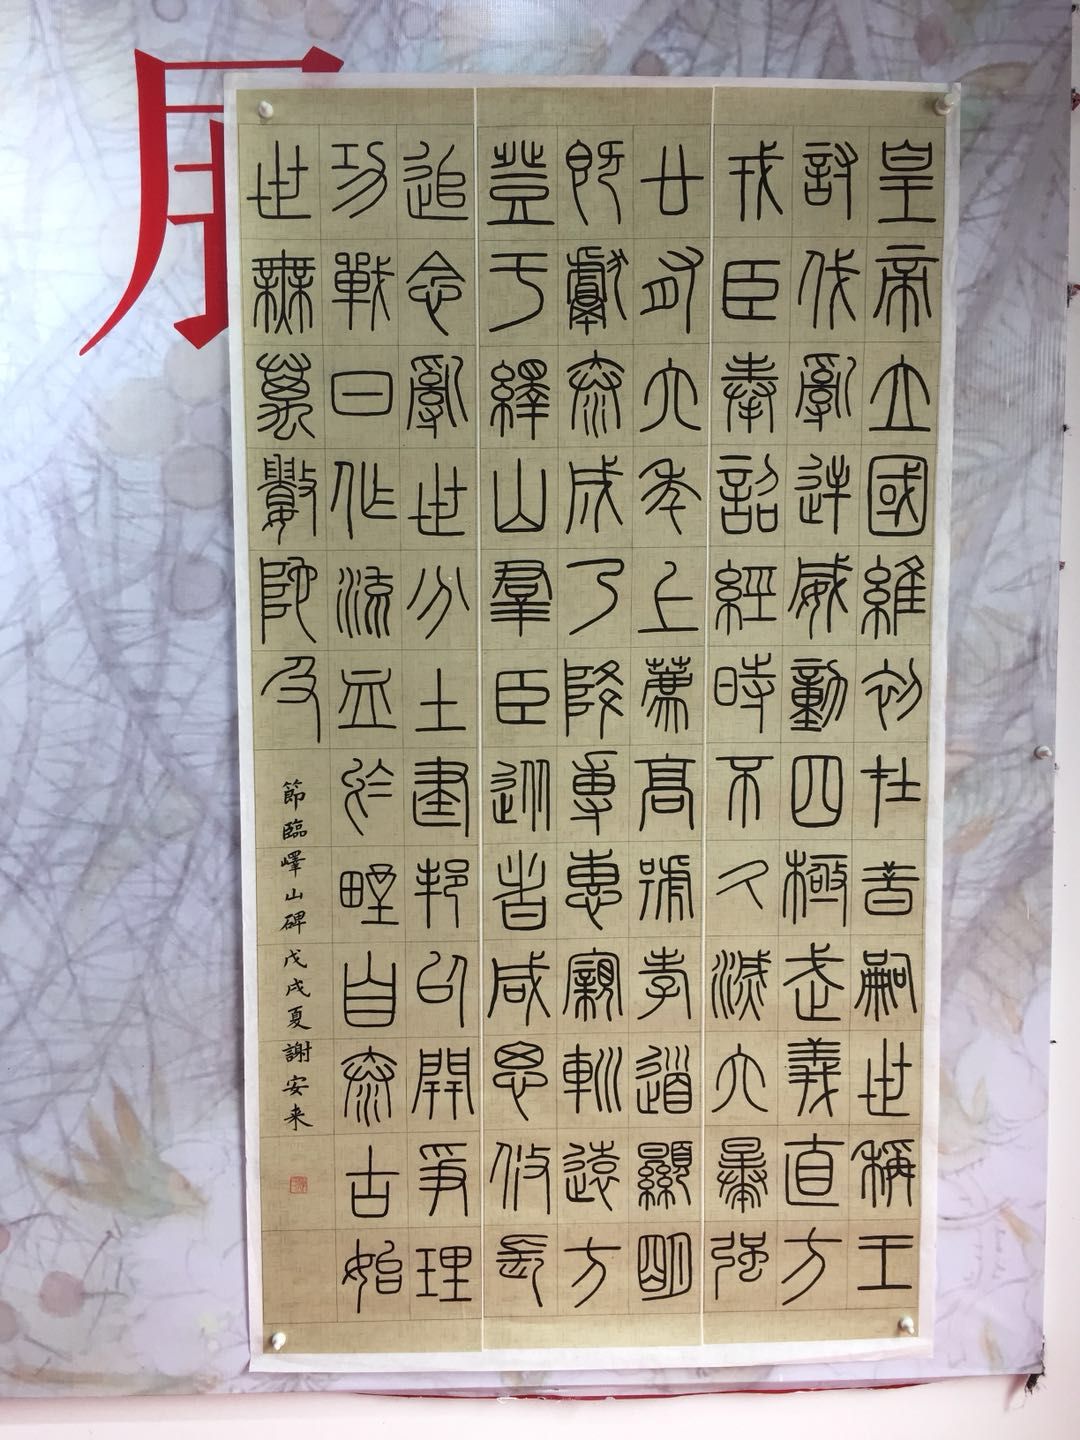 皇帝立國維初在昔嗣世稱王
討伐亂逆威動四極武義直方
戎臣奉詔經時不久滅六暴強
廿有六年上薦高號孝道顯明
既獻泰成乃降專惠親巡遠方
登于繹山羣臣從者咸思攸長
追念亂世分土建邦以開爭理
功戰日作流血於野自泰古始
世無萬數陀及
節臨嶧山碑戊戌夏謝安来